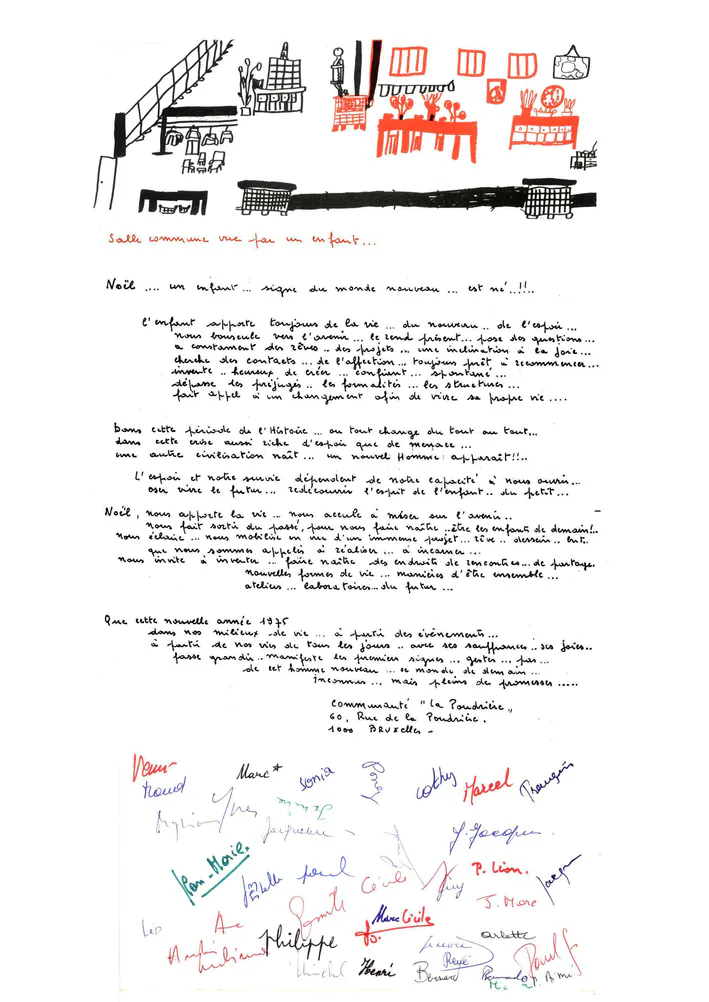 Salle commune vue par un enfant...
Noël .... un enfant... signe du monde nouveau ... est né..!!..
l'enfant apporte toujours de la vie ... du nouveau .. de l'espoir ...
nous bouscule vers l'avenir... le rend présent... pose des questions...
a constament des rêves .. des projets ... une inclination à la joie...
cherche des contacts ... de l'affection ... toujours prêt à recommencer...
invente .. heureux de créer ... confiant ... spontané ...
dépasse les préjugés .. les formalités ... les structures...
fait appel à un changement afin de vivre sa propre vie ....
Dans cette période de l'Histoire ... où tout change du tout au tout...
dans cette crise aussi riche d'espoir que de menace ...
une autre civilisation naît ... un nouvel Homme apparaît!!..
L'espoir et notre survie dépendent de notre capacité à nous ouvrir...
oser vivre le futur... redécouvrir l'esprit de l'enfant.. du petit...
Noël, nous apporte la vie ... nous accule à miser sur l'avenir..
nous fait sortir du passé, pour nous faire naître .. être les enfants de demain!..
nous éclaire ... nous mobilise en vue d'un immense projet... rêve .. dessein .. but..
que nous sommes appelés à réaliser ... à incarner ...
nous invite à inventer ... faire naître des endroits de rencontres... de partage.
nouvelles formes de vie ... manières d'être ensemble ...
ateliers ... laboratoires... du futur ...
Que cette nouvelle année 1975
dans nos milieux de vie ... à partir des événements ...
à partir de nos vies de tous les jours .. avec ses souffrances .. ses joies..
fasse grandir .. manifeste les premiers signes ... gestes ... pas ...
de cet homme nouveau ... ce monde de demain ...
inconnus ... mais pleins de promesses .....
Communauté "La Poudrière"
60, Rue de la Poudrière.
1000 BRUXELLES -
Marc*
Sonia
Cathy
Marcel
François
Yves
Jacqueline
J. Jacques
Jean-Marie
paul
Cécile
Guy
P. Léon.
J. Marc
Jacques
Léo
Philippe
Marc Cécile
Jo.
Arlette
René
Michel
Henri
Bernard